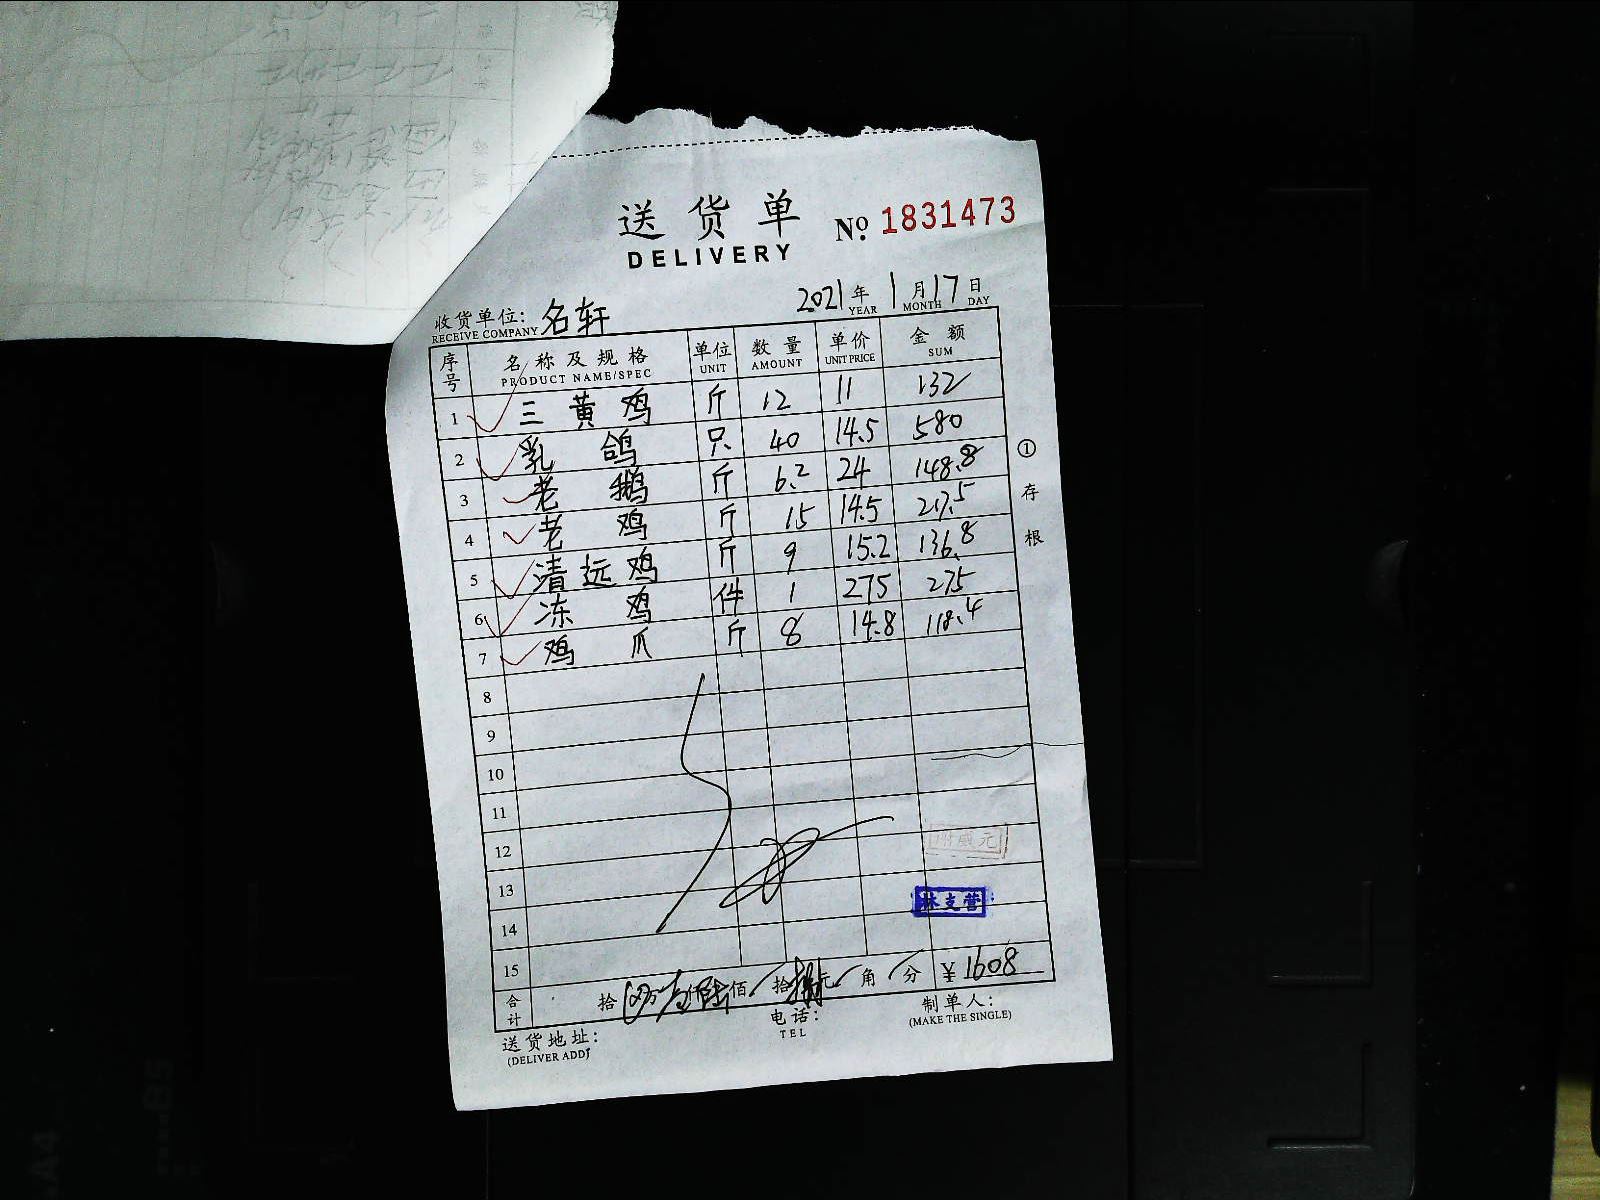 送货单
DELIVERY
№ 1831473
2021年1月17日
YEAR MONTH DAY
收货单位: 名轩
RECEIVE COMPANY
序号 名称及规格 单位 数量 单价 金额
PRODUCT NAME/SPEC UNIT AMOUNT UNIT PRICE SUM
1 三黄鸡 斤 12 11 132
2 乳鸽 只 40 14.5 580
3 老鹅 斤 6.2 24 148.8
4 老鸡 斤 15 14.5 217.5
5 清远鸡 斤 9 15.2 136.8
6 冻鸡 件 1 275 275
7 鸡爪 斤 8 14.8 118.4
8
9
10
11
12
13
14
15
①存根
林支营
合计 拾 万 仟 佰 拾 元 角 分 ¥1608
送货地址:
(DELIVER ADD)
电话:
TEL
制单人:
(MAKE THE SINGLE)
A4
B5